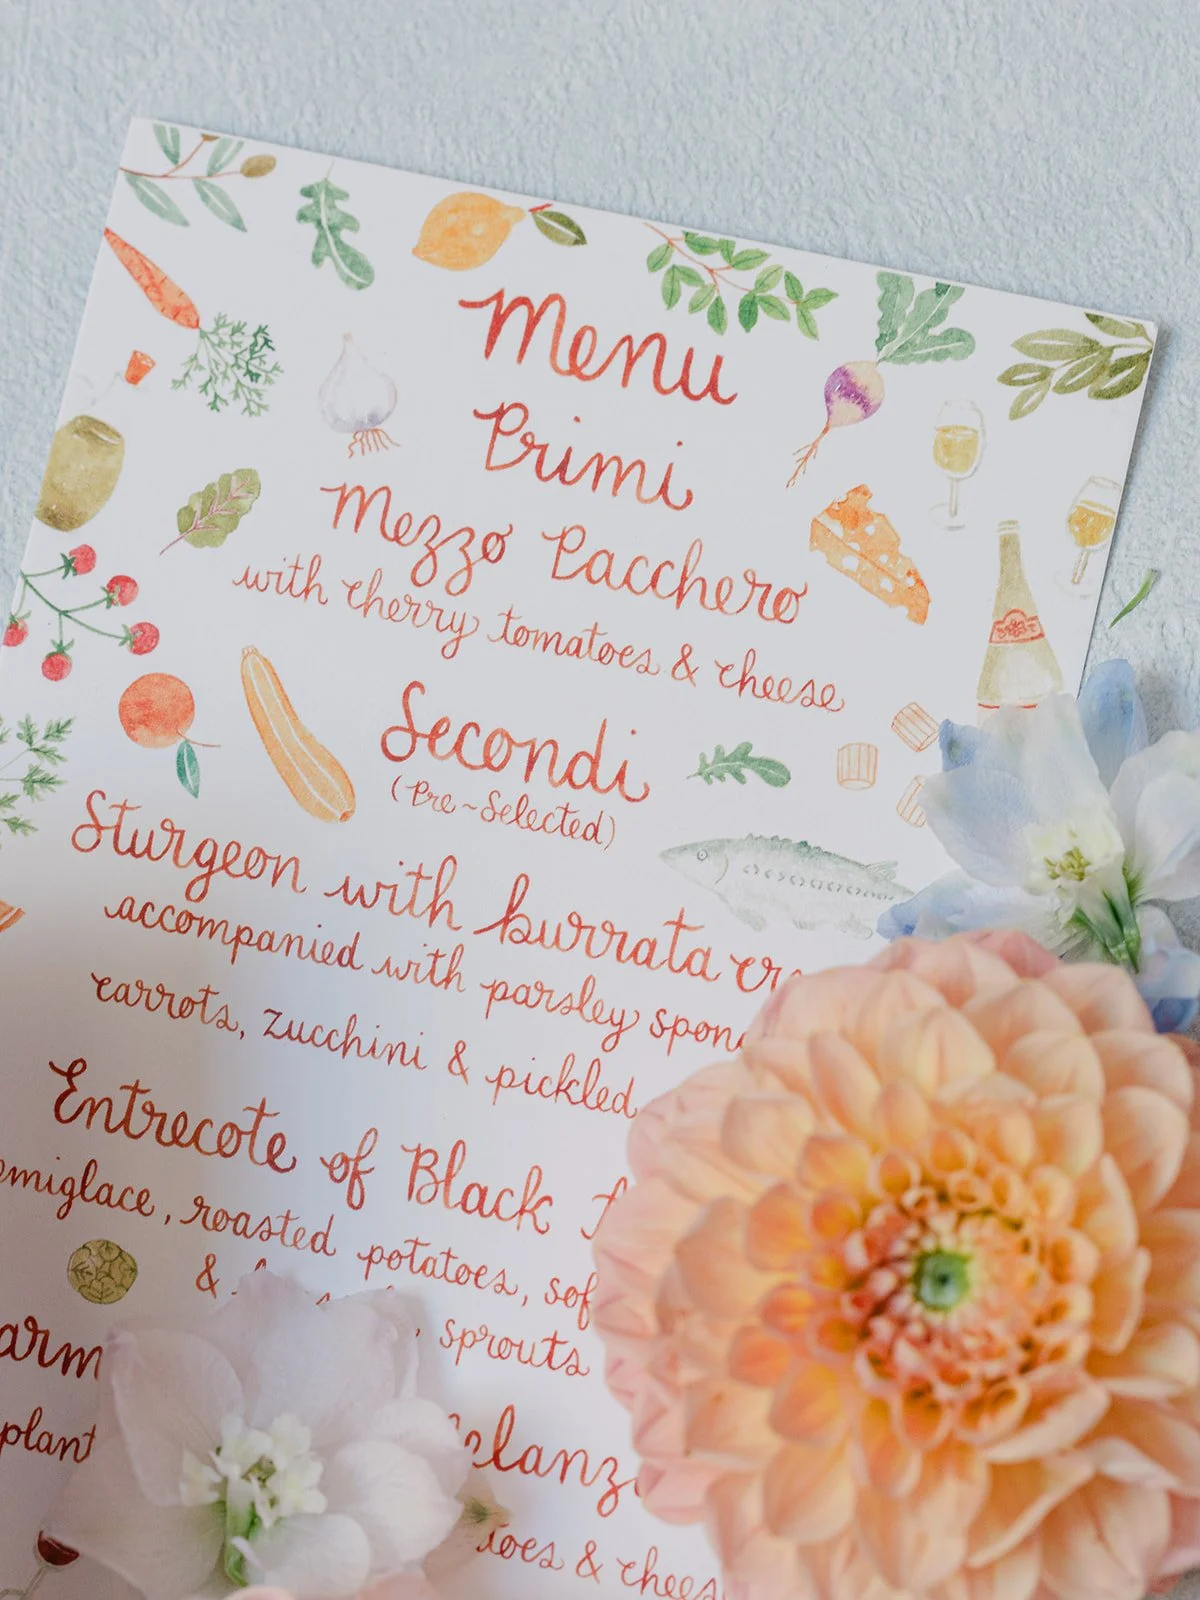 Menu
Primi
Mezzo Pacchero
with cherry tomatoes & cheese
Secondi
(Pre-Selected)
Sturgeon with burrata
accompanied with parsley
carrots, zucchini & pickled
Entrecote of Black
roasted potatoes,
&
sprouts
&